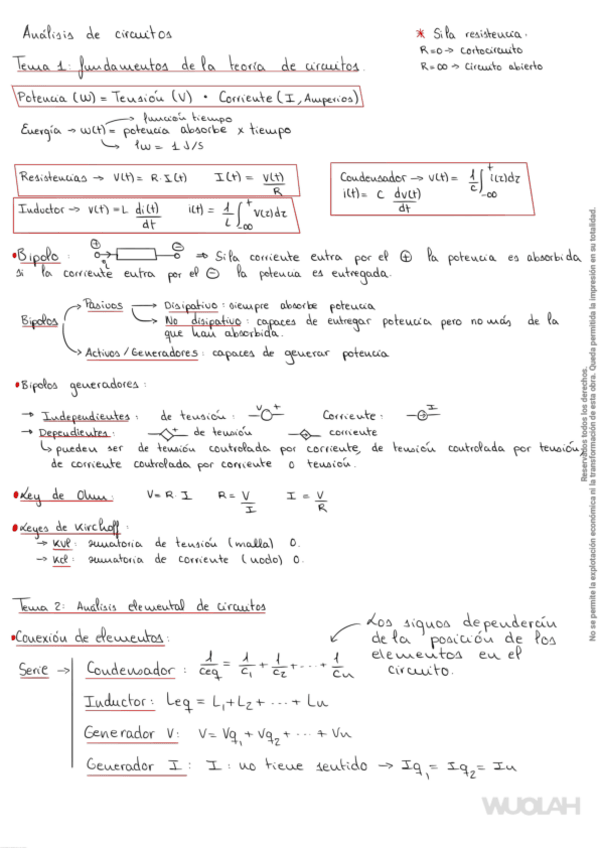 Análisis de circuitos
* Si la resistencia.
R=0 → cortocircuito
R=∞ → circuito abierto
Tema 1: fundamentos de la teoría de circuitos.
Potencia (W) = Tensión (V) · Corriente (I, Amperios)
función tiempo
Energía → w(t) = potencia absorbe x tiempo
1w = 1 J/s
Resistencias → V(t) = R·I(t) I(t) = V(t)/R
Condensador → v(t) = 1/C ∫_-∞^t i(z)dz
i(t) = C dv(t)/dt
Inductor → v(t) = L di(t)/dt i(t) = 1/L ∫_-∞^t v(z)dz
• Bipolo: + - ⇒ Si la corriente entra por el ⊕ la potencia es absorbida
si la corriente entra por el ⊖ la potencia es entregada.
Bipolos
Pasivos → Disipativo: siempre absorbe potencia
No disipativo: capaces de entregar potencia pero no más de la
que han absorbida.
Activos/Generadores: capaces de generar potencia
• Bipolos generadores:
→ Independientes: de tensión: V + Corriente: I
→ Dependientes: + de tensión corriente
↳ pueden ser de tensión controlada por corriente, de tensión controlada por tensión,
de corriente controlada por corriente o tensión.
• Ley de Ohm: V = R·I R = V/I I = V/R
• Leyes de Kirchoff:
→ KVL: sumatoria de tensión (malla) 0.
→ KCL: sumatoria de corriente (nodo) 0.
Tema 2: Análisis elemental de circuitos
• Conexión de elementos:
Los signos dependerán
de la posición de los
elementos en el
circuito.
Serie → Condensador: 1/Ceq = 1/C1 + 1/C2 + ... + 1/Cn
Inductor: Leq = L1 + L2 + ... + Ln
Generador V: V = Vg1 + Vg2 + ... + Vn
Generador I: I: no tiene sentido → Ig1 = Ig2 = In
Reservados todos los derechos.
No se permite la explotación económica ni la transformación de esta obra. Queda permitida la impresión en su totalidad.
WUOLAH